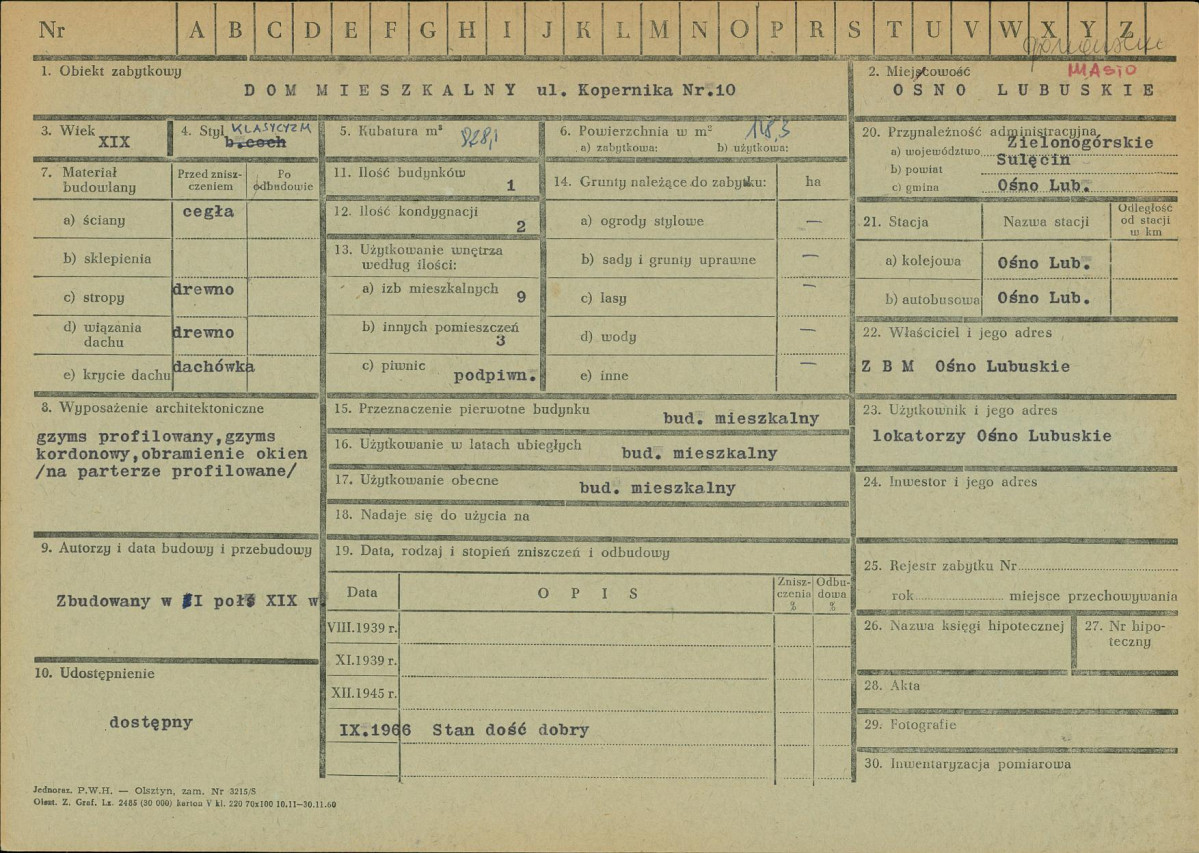 Nr A B C D E F G H I J K L M N O P R S T U V W X Y Z
1. Obiekt zabytkowy
DOM MIESZKALNY ul. Kopernika Nr.10
2. Miejscowość
MIASTO
OŚNO LUBUSKIE
3. Wiek
XIX
4. Styl KLASYCYZM
b.cech
5. Kubatura m³
828,1
6. Powierzchnia w m² 118,3
a) zabytkowa: b) użytkowa:
7. Materiał budowlany
Przed zniszczeniem
Po odbudowie
a) ściany cegła
b) sklepienia
c) stropy drewno
d) wiązania dachu drewno
e) krycie dachu dachówka
8. Wyposażenie architektoniczne
gzyms profilowany,gzyms
kordonowy,obramienie okien
/na parterze profilowane/
9. Autorzy i data budowy i przebudowy
Zbudowany w II poł. XIX w.
10. Udostępnienie
dostępny
11. Ilość budynków
1
12. Ilość kondygnacji
2
13. Użytkowanie wnętrza
według ilości:
a) izb mieszkalnych 9
b) innych pomieszczeń
3
c) piwnic
podpiwn.
14. Grunty należące do zabytku: ha
a) ogrody stylowe —
b) sady i grunty uprawne —
c) lasy —
d) wody —
e) inne —
15. Przeznaczenie pierwotne budynku
bud. mieszkalny
16. Użytkowanie w latach ubiegłych
bud. mieszkalny
17. Użytkowanie obecne
bud. mieszkalny
18. Nadaje się do użycia na
19. Data, rodzaj i stopień zniszczeń i odbudowy
Data OPIS Zniszczenia % Odbudowa %
VIII.1939 r.
XI.1939 r.
XII.1945 r.
IX.1966 Stan dość dobry
20. Przynależność administracyjna
a) województwo Zielonogórskie
b) powiat Sulęcin
c) gmina Ośno Lub.
21. Stacja Nazwa stacji Odległość od stacji w km
a) kolejowa Ośno Lub.
b) autobusowa Ośno Lub.
22. Właściciel i jego adres
Z B M Ośno Lubuskie
23. Użytkownik i jego adres
lokatorzy Ośno Lubuskie
24. Inwestor i jego adres
25. Rejestr zabytku Nr
rok miejsce przechowywania
26. Nazwa księgi hipotecznej
27. Nr hipoteczny
28. Akta
29. Fotografie
30. Inwentaryzacja pomiarowa
Jednoraz. P.W.H. — Olsztyn, zam. Nr 3215/S
Olszt. Z. Graf. Lz. 2485 (30 000) karton V kl. 220 70x100 10.11—30.11.60